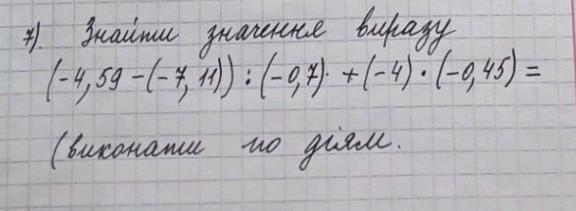 7). Знайти значення виразу
(-4,59 -(-7,11)) : (-0,7) + (-4) · (-0,45) =
(виконати по діям.